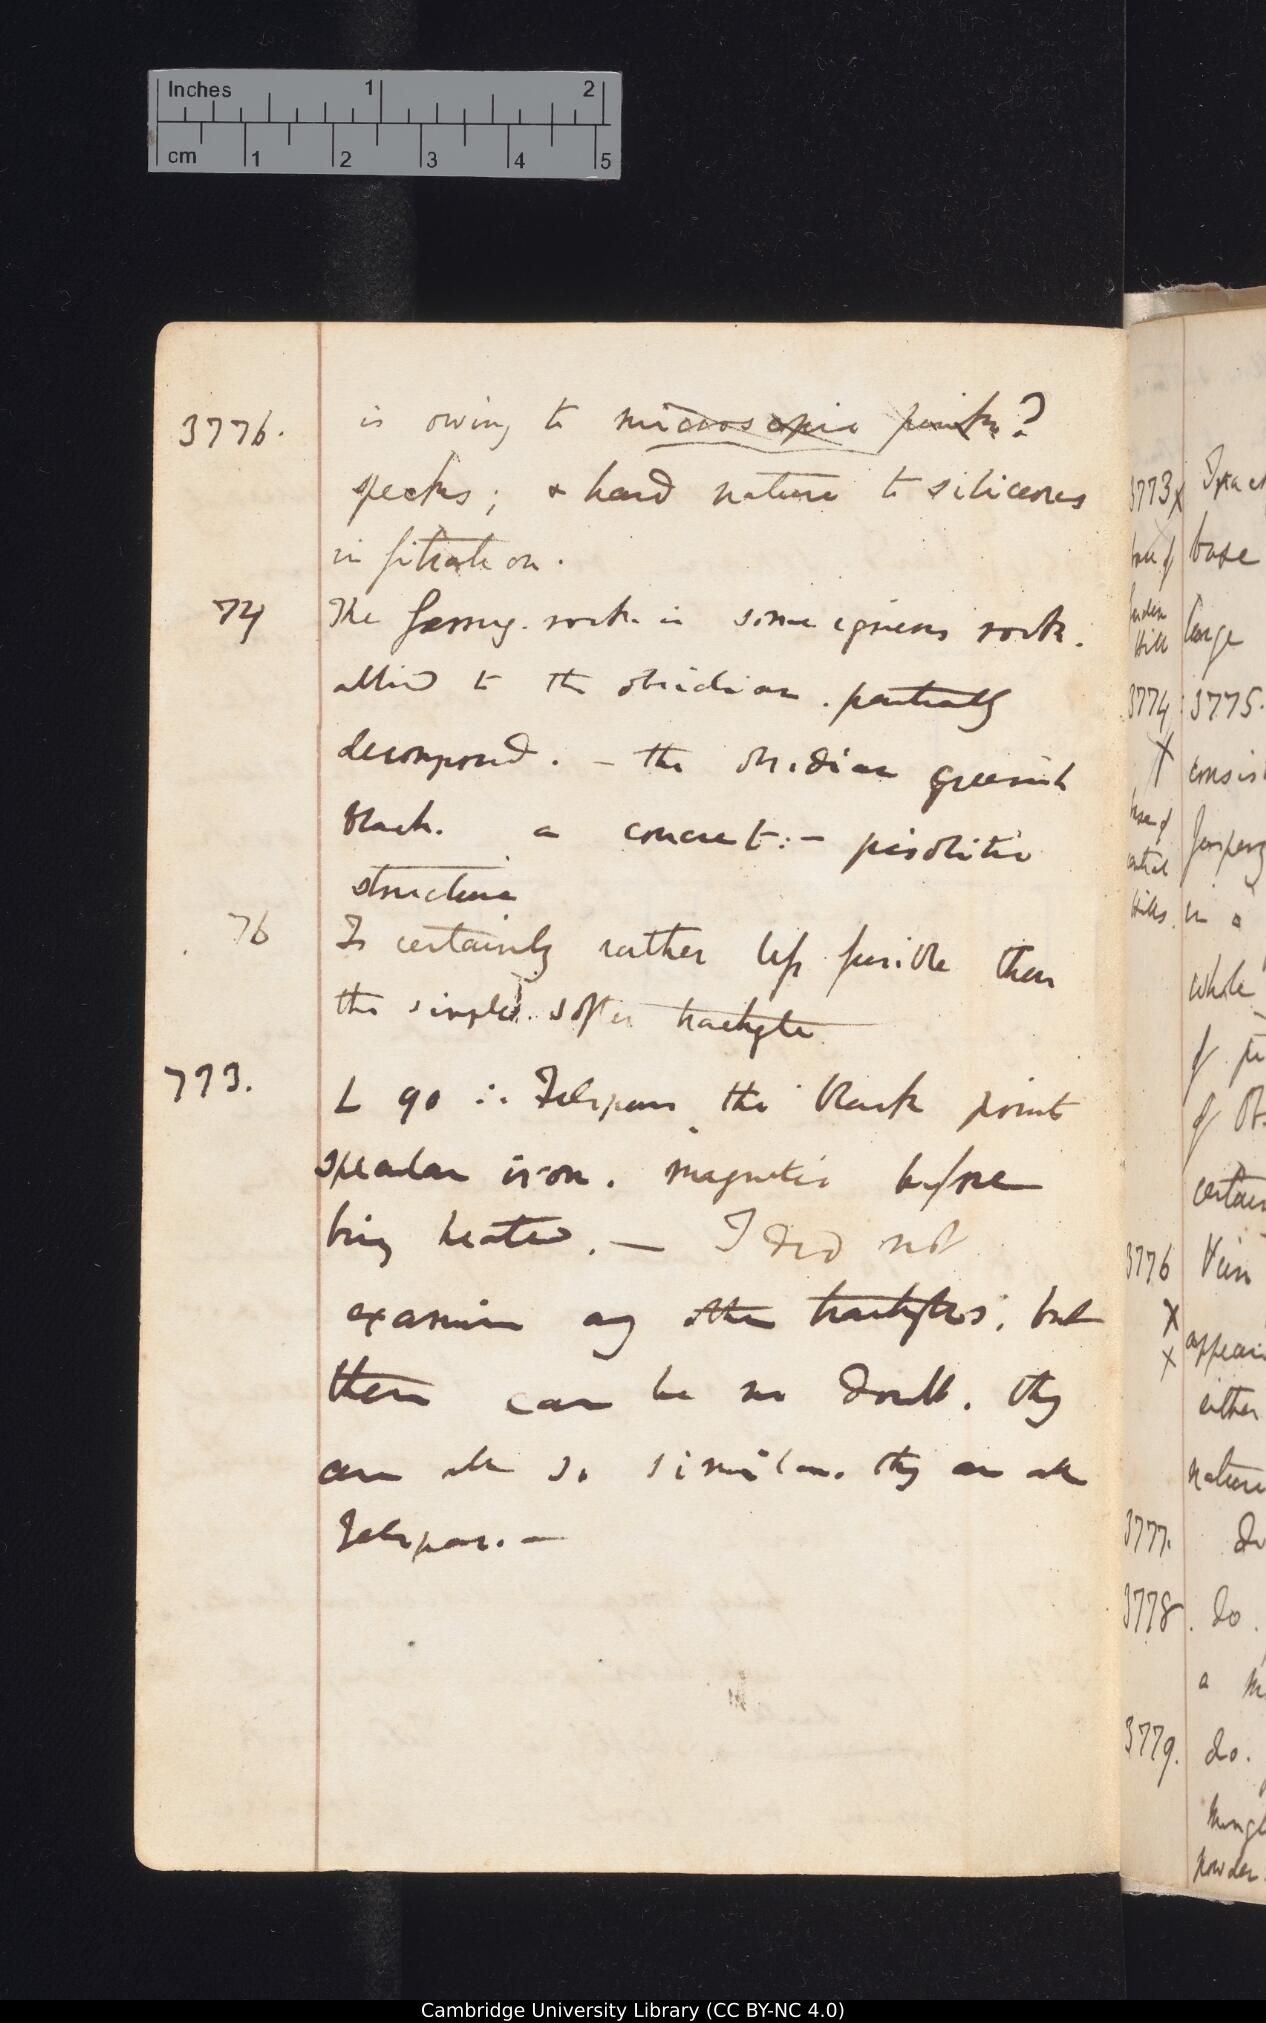 Inches 1 2
cm 1 2 3 4 5
3776. is owing to microscopic points?
specks; & hard nature to siliceous
infiltration.
74 The rock is some igneous rock.
allied to the obsidian. partially
decomposed. — the obsidian greenish
black. a concret: — pisolitic
structure
76 Is certainly rather less fusible than
the simple softer trachyte
773. L 90 ∴ Felspar, the black points
specular iron. magnetic before
being heated. — I did not
examine any other trachytes, but
there can be no doubt. they
are all so similar. they are all
Felspar. —
3773x
base of base
Hill large
3774 3775.
x consis
base of
central
Hills. in a
whole
of
of Ob
certain
3776 Vein
x
x appear
either
nature
3777. do
3778. do.
a
3779. do.
powder.
Cambridge University Library (CC BY-NC 4.0)